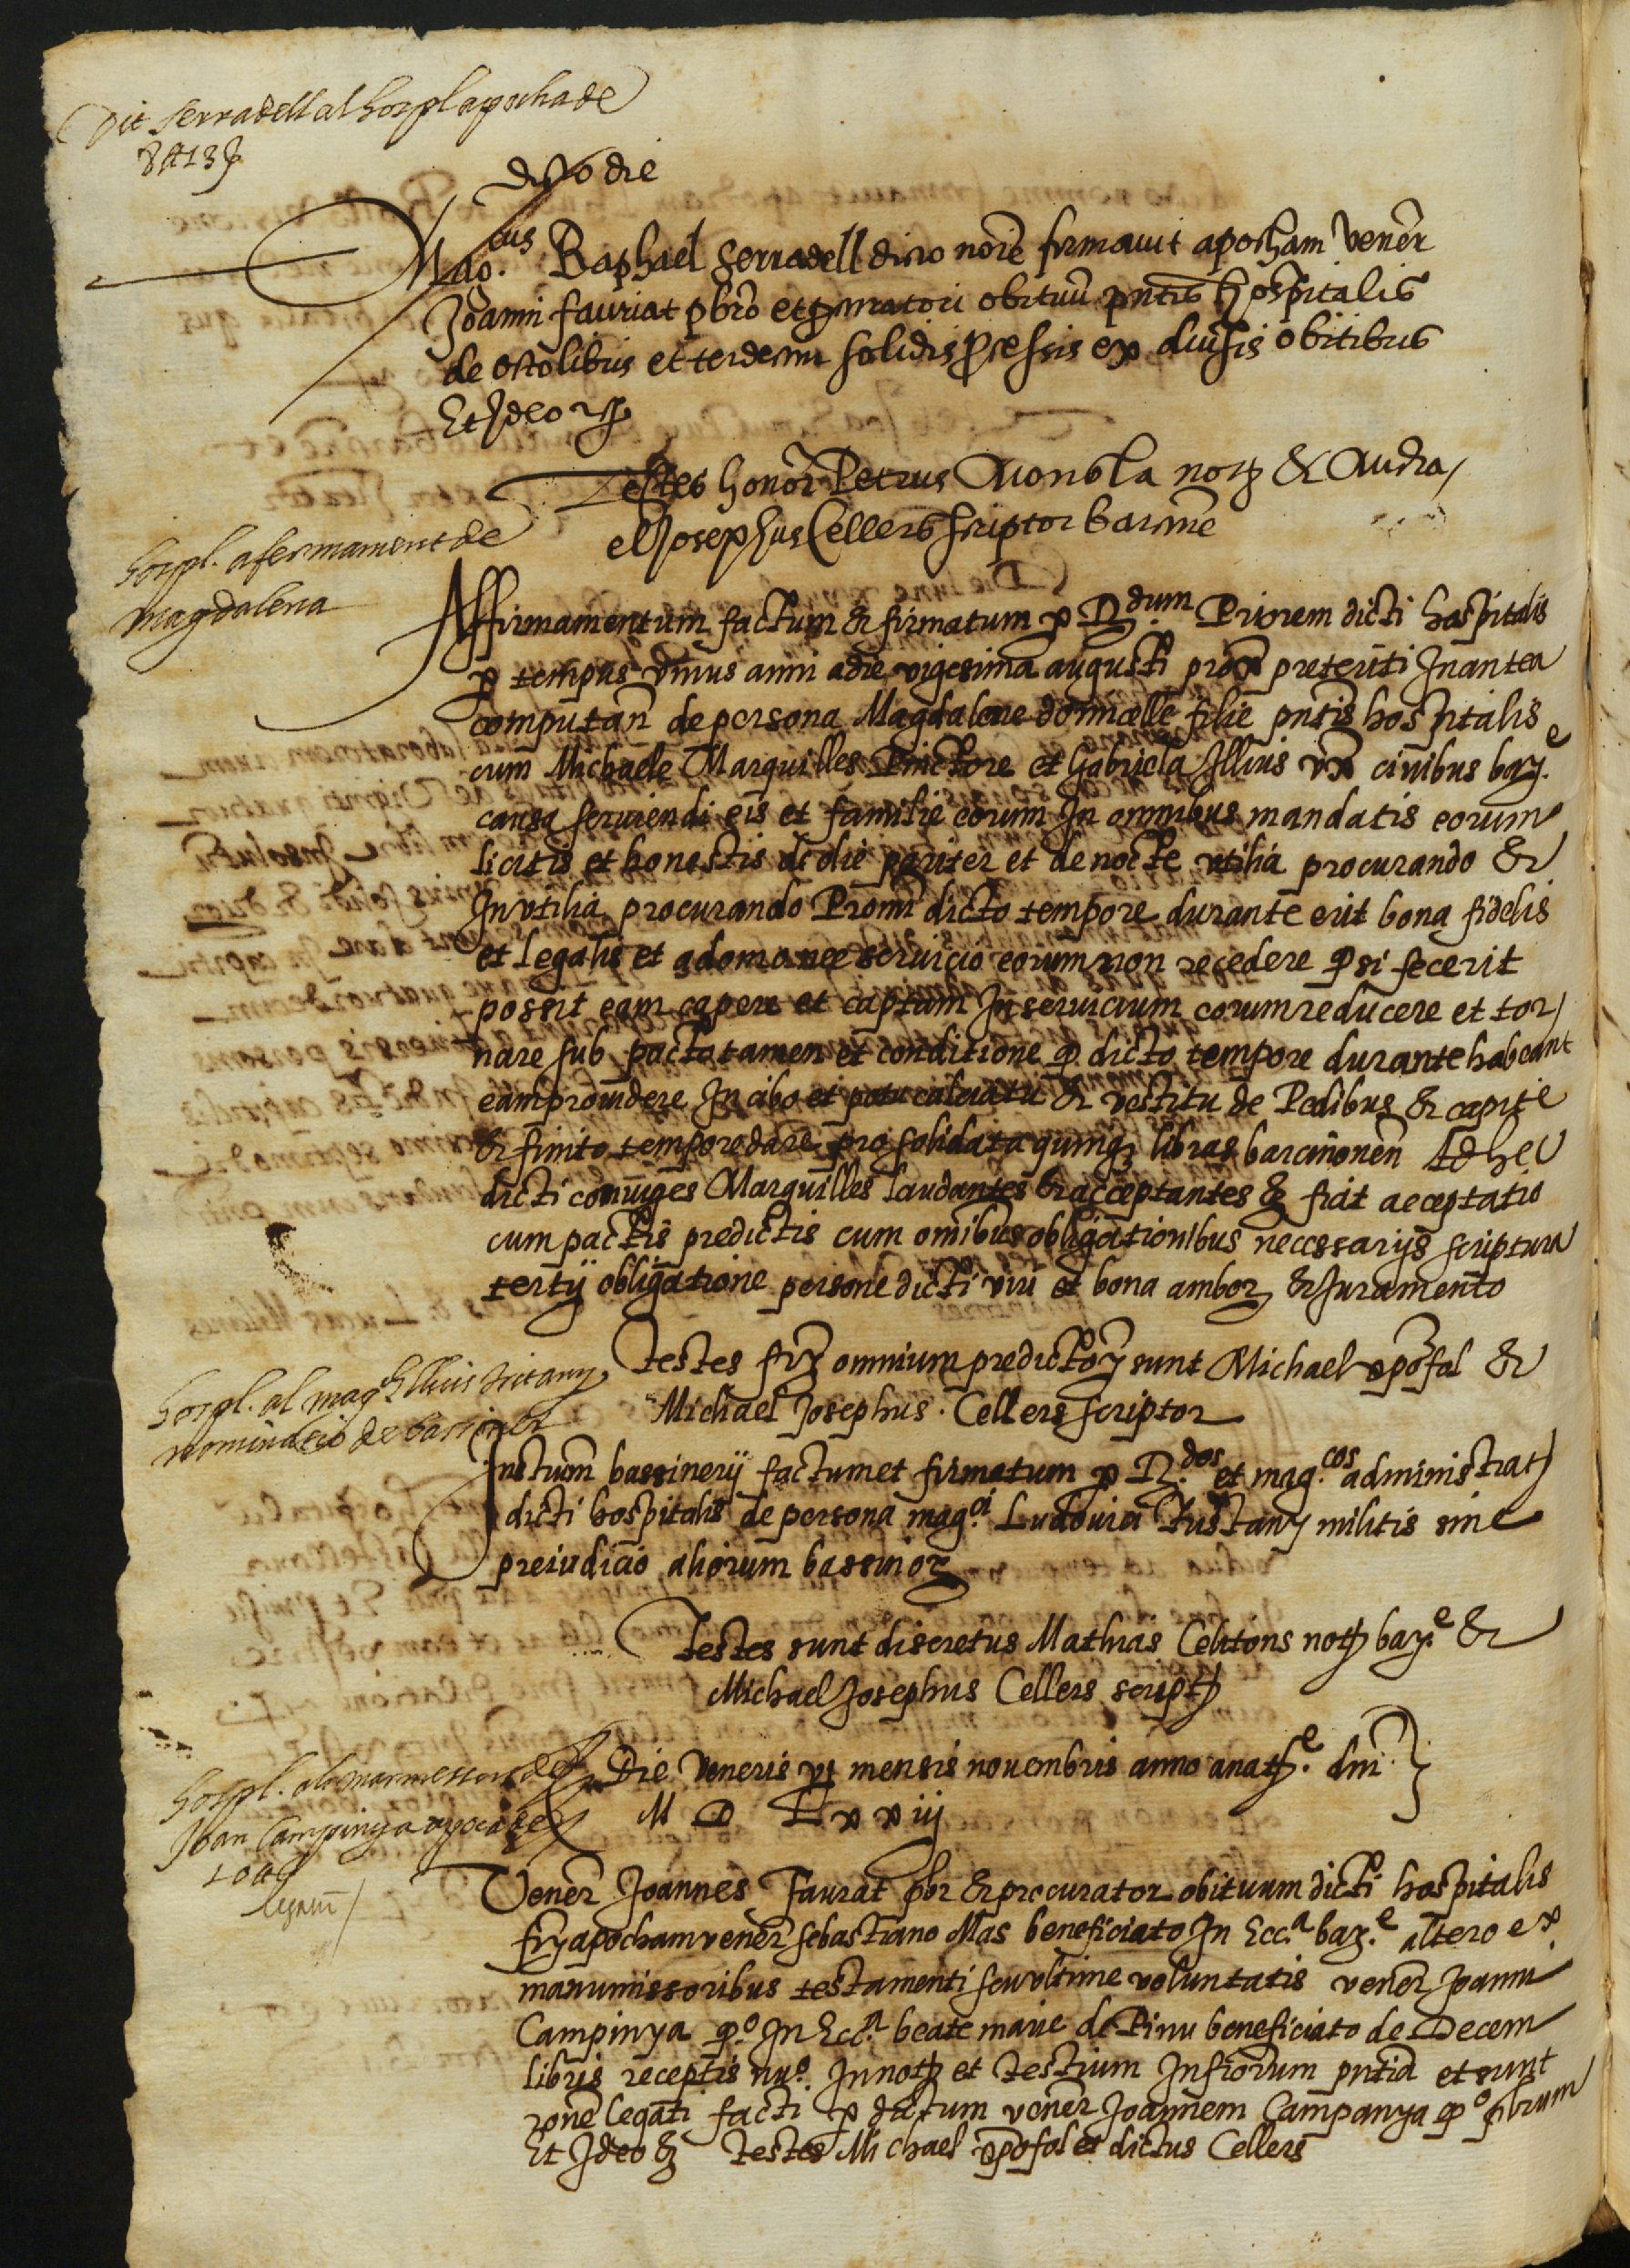 Dit Serradell al hospl apocha de
8 ll 13 s
dicto die
Mag.cus Raphael Serradell dicto noie firmavit apocham Vener
Joanni fauriat pbro et procuratori obituu pntis hospitalis
de octo libris et terdecim solidis processis ex diversis obitibus
Et Ideo
Testes honor Petrus Monbla not & Audra
el Josephus Cellers scriptor barcine
hospl. afermament de
magdalena
Affirmamentum factum & firmatum p R.dum Priorem dicti hospitalis
p tempus unius anni a die vigesima augusti prox preteriti In antea
computan de persona Magdalene domicelle filie pntis hospitalis
cum Michaele Marquilles Pinctore et Gabriela Illius ux civibus bar.e
causa serviendi eis et familie eorum In omnibus mandatis eorum
licitis et honestis de die pariter et de nocte utilia procurando &
Inutilia procurando Promi dicto tempore durante erit bona fidelis
et legalis et a domo nec servicio eorum non recedere q si fecerit
possit eam capere et captam In servicium eorum reducere et tor
nare sub pacto tamen et conditione q dicto tempore durante habeant
eam providere In cibo et potu calciatu & vestitu de Pedibus & capite
& finito tempore dare pro solidata quinq libras barcinonen Ad hec
dicti coniuges Marquilles laudantes & acceptantes & fiat acceptatio
cum pactis predictis cum omibus obligationibus necessarijs scriptura
tertij obligatione persone dicti viri et bona ambor & Juramento
Testes fr omnium predictor sunt Michael xpofol &
Michael Josephus Cellers scriptor
hospl. al mag.ch lluis tristany
nominatio de bassiner
Instrum bassinerij factum et firmatum p R.dos et mag.cos administrat
dicti hospitalis de persona mag.ci Ludovici Tristany militis sine
preiudicio aliorum bassinor
Testes sunt discretus Mathias Celitons not bar.e &
Michael Josephus Cellers script
Die Veneris vj mensis novembris anno a nat.e dni
M D Lxxiij
hospl. als marmessors de
Joan Campinya apoca de
10 ll
legatu
Vener Joannes Faurat pbr & procurator obituum dicti hospitalis
fr apocham vener Sebastiano Mas beneficiato In Ecc.a bar.e altero ex
manumissoribus testamenti seu ultime voluntatis vener Joanni
Campinya q.o In Ecc.a beate marie de Pinu beneficiato de Decem
libris receptis nu.o In not et testium Infrorum pntia et sunt
rone legati facti p dictum vener Joannem Campanya q.o pbrum
Et Ideo & Testes Michael xpofol et dictus Cellers